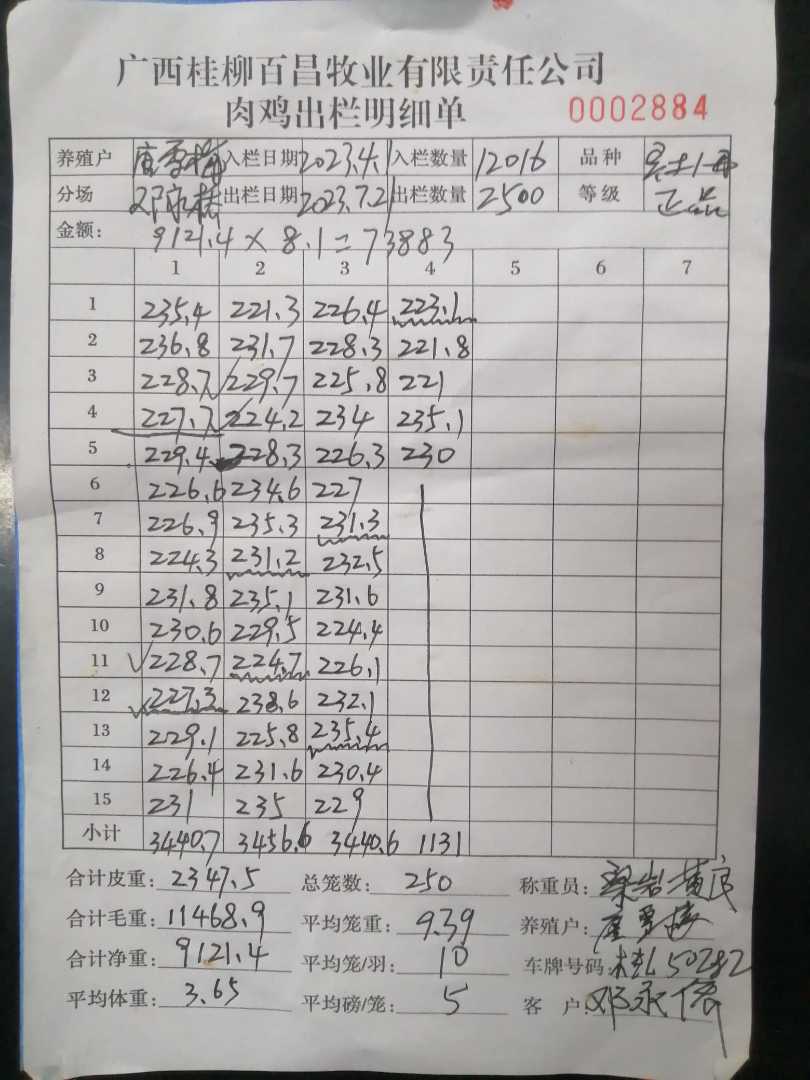 广西桂柳百昌牧业有限责任公司
肉鸡出栏明细单 0002884
养殖户 入栏日期 2023.4.1 入栏数量 12016 品种
分场 邓永 出栏日期 2023.7.21 出栏数量 2500 等级 正品
金额: 9121.4 × 8.1 = 73883
1 2 3 4 5 6 7
1 235.4 221.3 226.4 223.1
2 236.8 231.7 228.3 221.8
3 228.7 229.7 225.8 221
4 227.7 224.2 234 235.1
5 229.4 228.3 226.3 230
6 226.6 234.6 227
7 226.9 235.3 231.3
8 224.3 231.2 232.5
9 231.8 235.1 231.6
10 230.6 229.5 224.4
11 228.7 224.7 226.1
12 227.3 238.6 232.1
13 229.1 225.8 235.4
14 226.4 231.6 230.4
15 231 235 229
小计 3440.7 3456.6 3440.6 1131
合计皮重: 2347.5 总笼数: 250 称重员:
合计毛重: 11468.9 平均笼重: 9.39 养殖户:
合计净重: 9121.4 平均笼/羽: 10 车牌号码: 50282
平均体重: 3.65 平均磅/笼: 5 客 户: 邓永